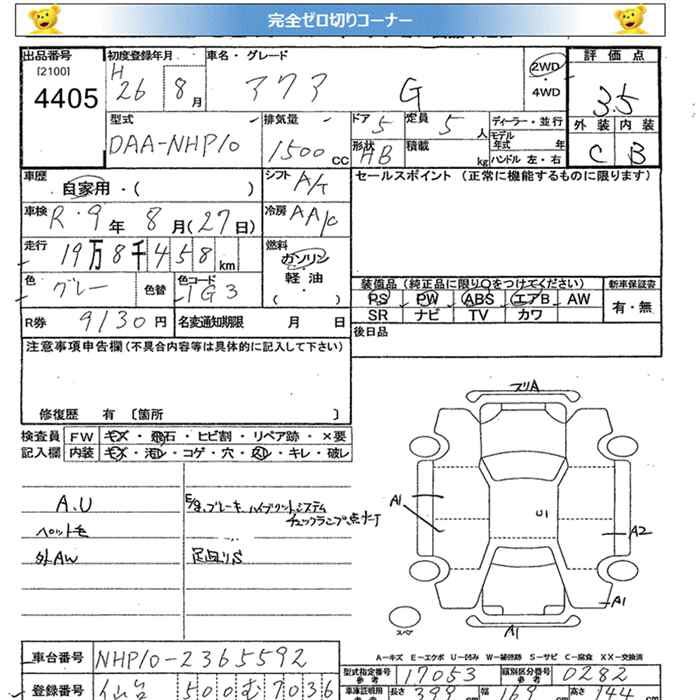 完全ゼロ切りコーナー
出品番号
[2100]
4405
初度登録年月
H
26 8月
車名・グレード
アクア G
2WD
・
4WD
評価点
3.5
外装 内装
C B
型式
DAA-NHP10
排気量
1500 cc
ドア 5
定員 5 人
形状 HB
積載 kg
ディーラー・並行
モデル年式 年
ハンドル 左・右
車歴
自家用・( )
シフト A/T
セールスポイント (正常に機能するものに限ります)
車検
R・9年 8月(27日)
冷房 AA/C
走行
19万8千458km
燃料
ガソリン
軽油
・( )
色 グレー
色替
色コード 1G3
装備品 (純正品に限り○をつけてください)
新車保証書
PS PW ABS エアB AW
有・無
SR ナビ TV カワ
R券 9130円
名変通知期限 月 日
後日品
注意事項申告欄 (不具合内容等は具体的に記入して下さい)
修復歴 有 [箇所 ]
検査員 FW キズ・飛石・ヒビ割・リペア跡・×要
記入欄 内装 キズ・汚レ・コゲ・穴・スレ・キレ・破レ
A.U
ペット毛
外AW
E/g、ブレーキ、ハイブリットシステム
チェックランプ点灯
足回りS
フリA
A1
U1
A2
A1
A1
スペア
A-キズ E-エクボ U-凹み W-補修跡 S-サビ C-腐食 XX-交換済
車台番号 NHP10-2365592
型式指定番号 参考 17053
類別区分番号 参考 0282
登録番号 仙台 500 む 7036
車庫証明用 長さ 399 幅 169 高さ 144